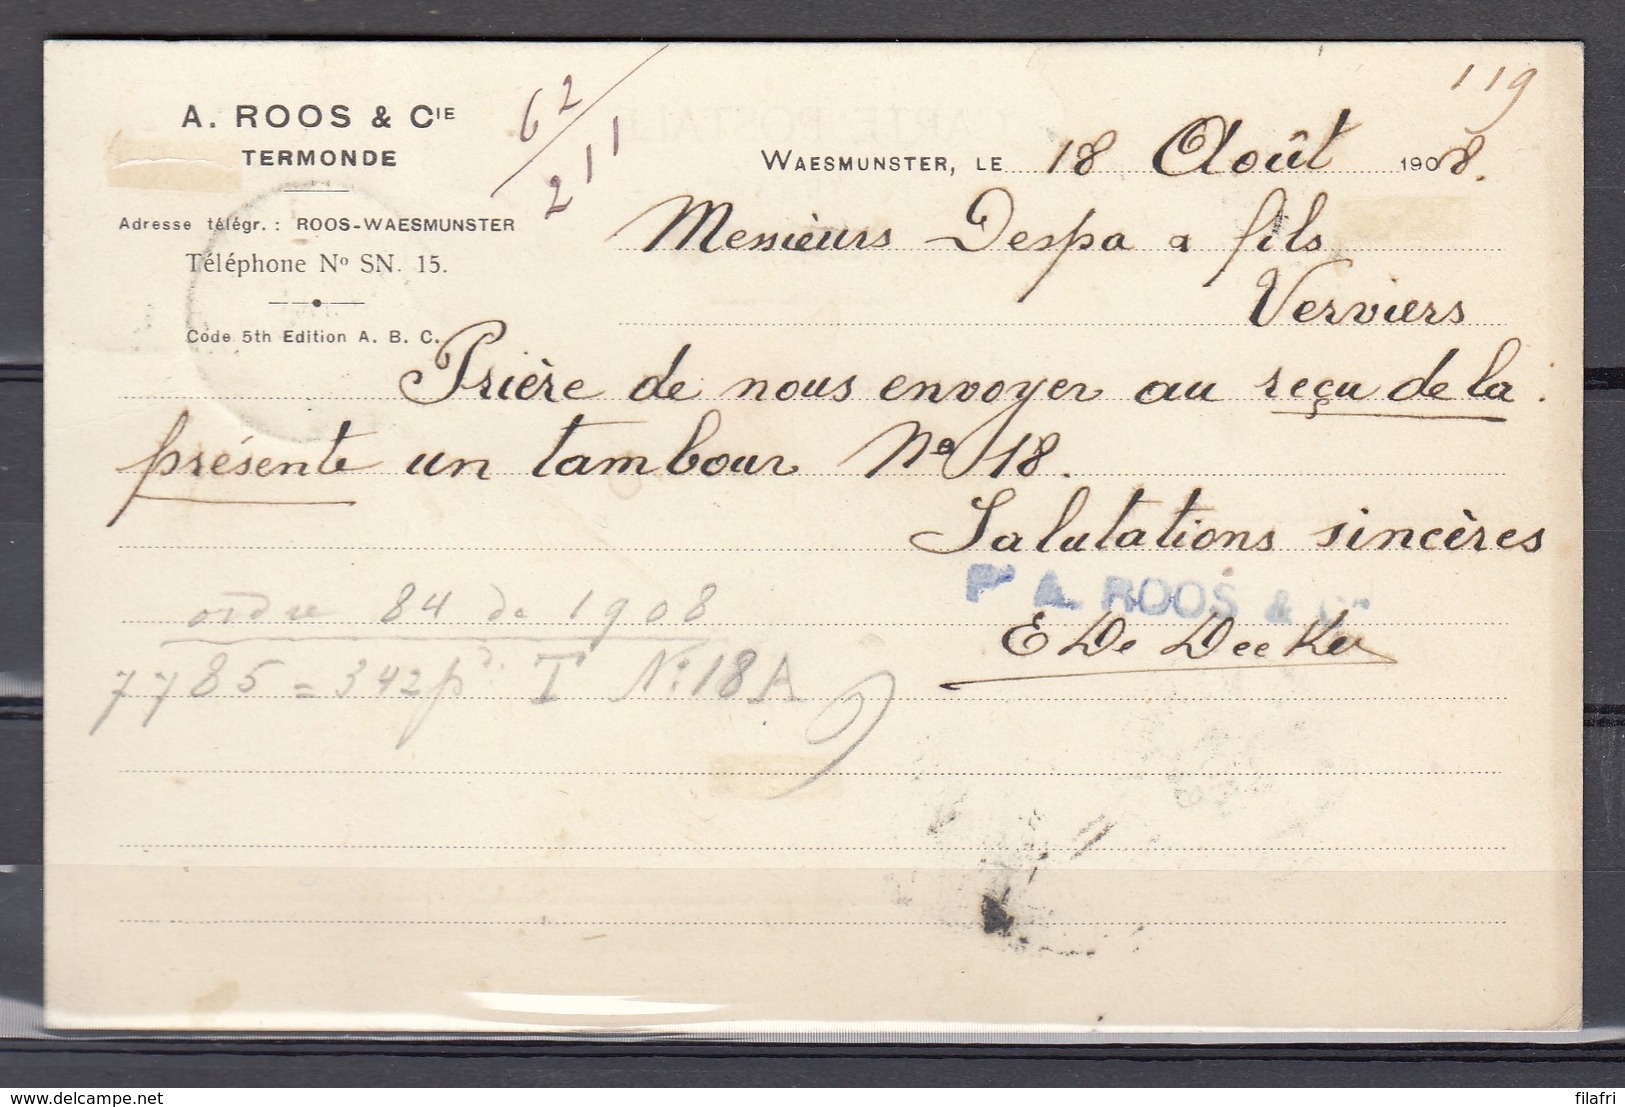 119
62
211
A. ROOS & CIE
TERMONDE
Adresse télégr.: ROOS-WAESMUNSTER
Téléphone No SN. 15.
Code 5th Edition A. B. C.
WAESMUNSTER, LE 18 Août 1908.
Messieurs Despa & fils
Verviers
Prière de nous envoyer au reçu de la
présente un tambour No 18.
Salutations sincères
Pr A. ROOS & Cie
E De Decker
ordre 84 de 1908
7785 = 342 pd. T No 18A
delcampe.net
filafri